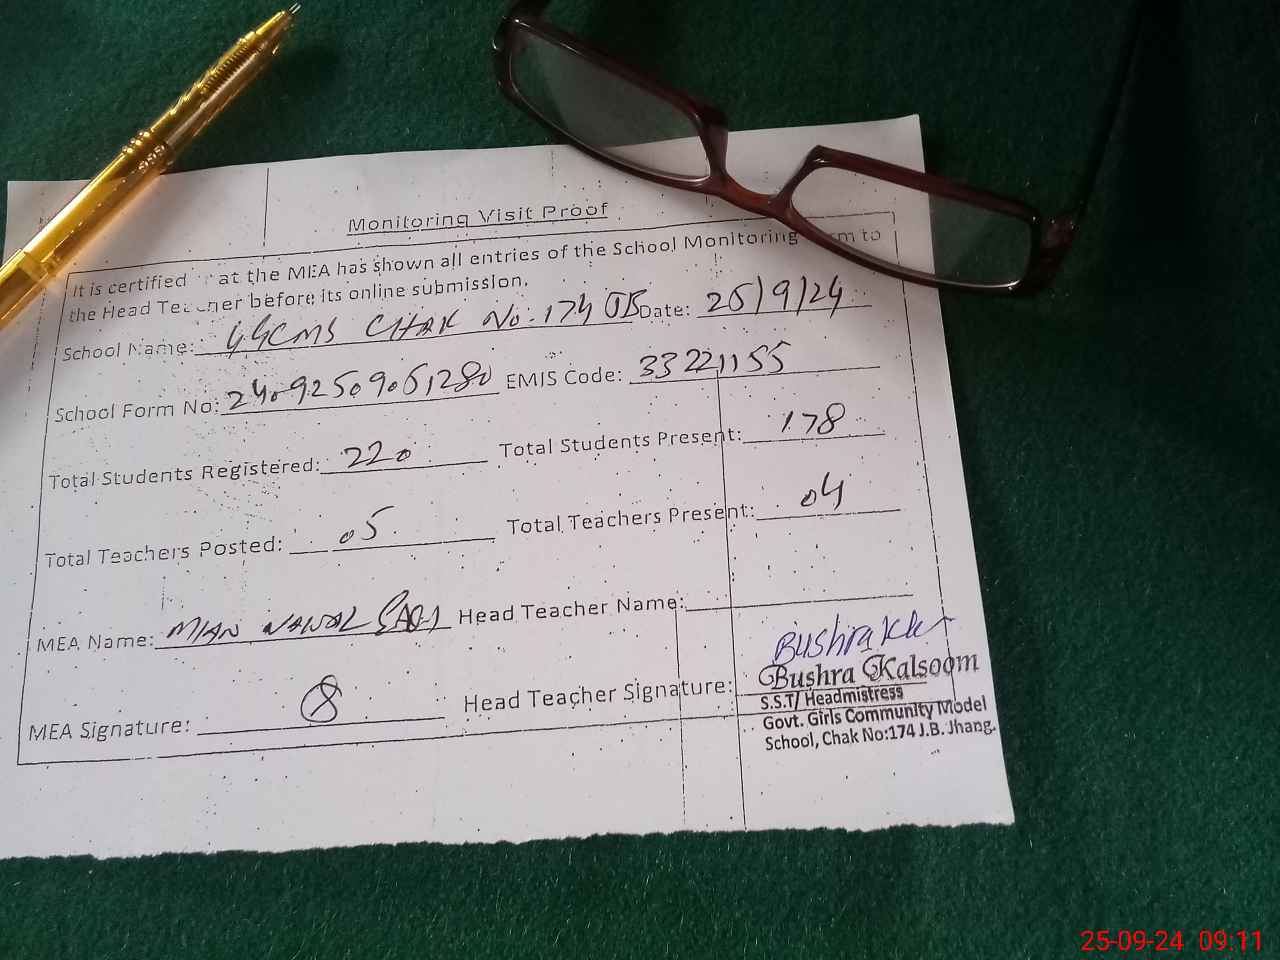 Monitoring Visit Proof
It is certified at the MEA has shown all entries of the School Monitoring to
the Head Teacher before its online submission.
School Name: GGCMS CHAK No: 174 JB Date: 25/9/24
School Form No: EMIS Code: 33221155
Total Students Registered: 220 Total Students Present: 178
Total Teachers Posted: 05 Total Teachers Present: 04
MEA Name: MIAN NAWAZ Head Teacher Name:
Bushra
MEA Signature: Head Teacher Signature: Bushra Kalsoom
S.S.T/ Headmistress
Govt. Girls Community Model
School, Chak No:174 J.B. Jhang.
25-09-24 09:11